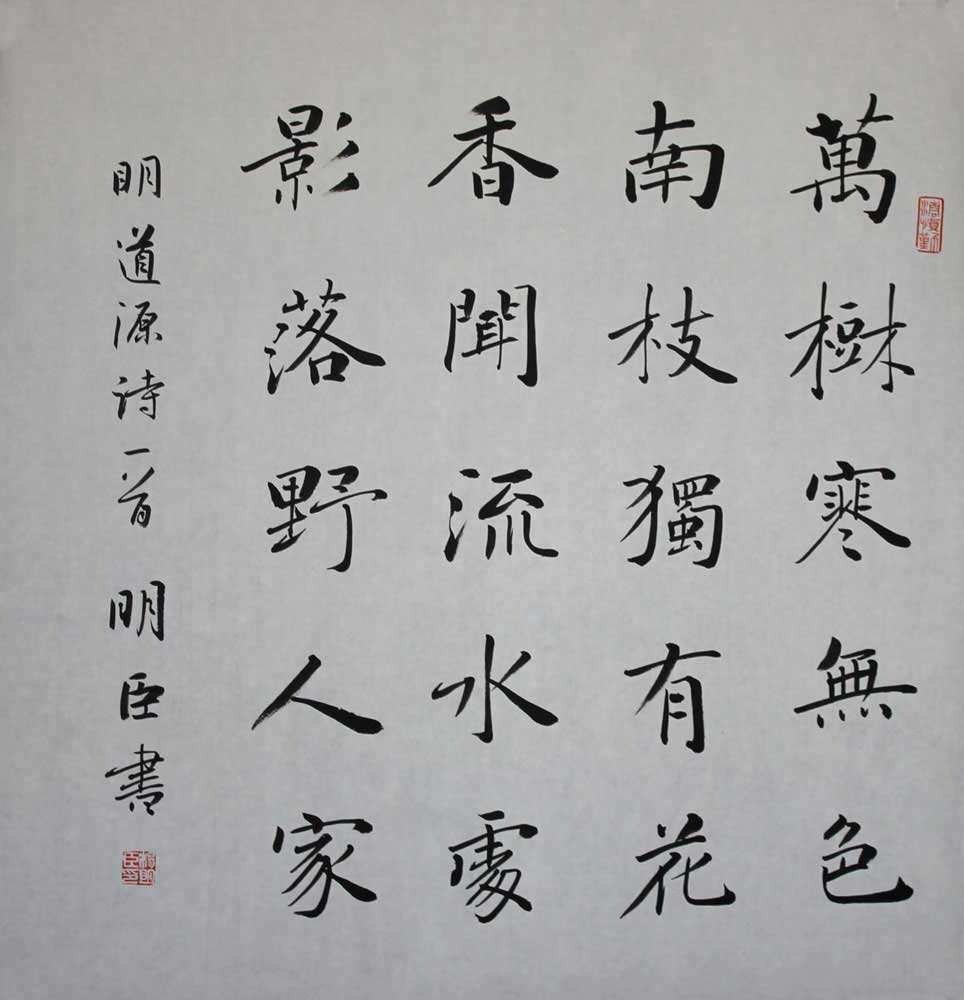 萬樹寒無色
南枝獨有花
香聞流水處
影落野人家
明道源诗一首 明臣書